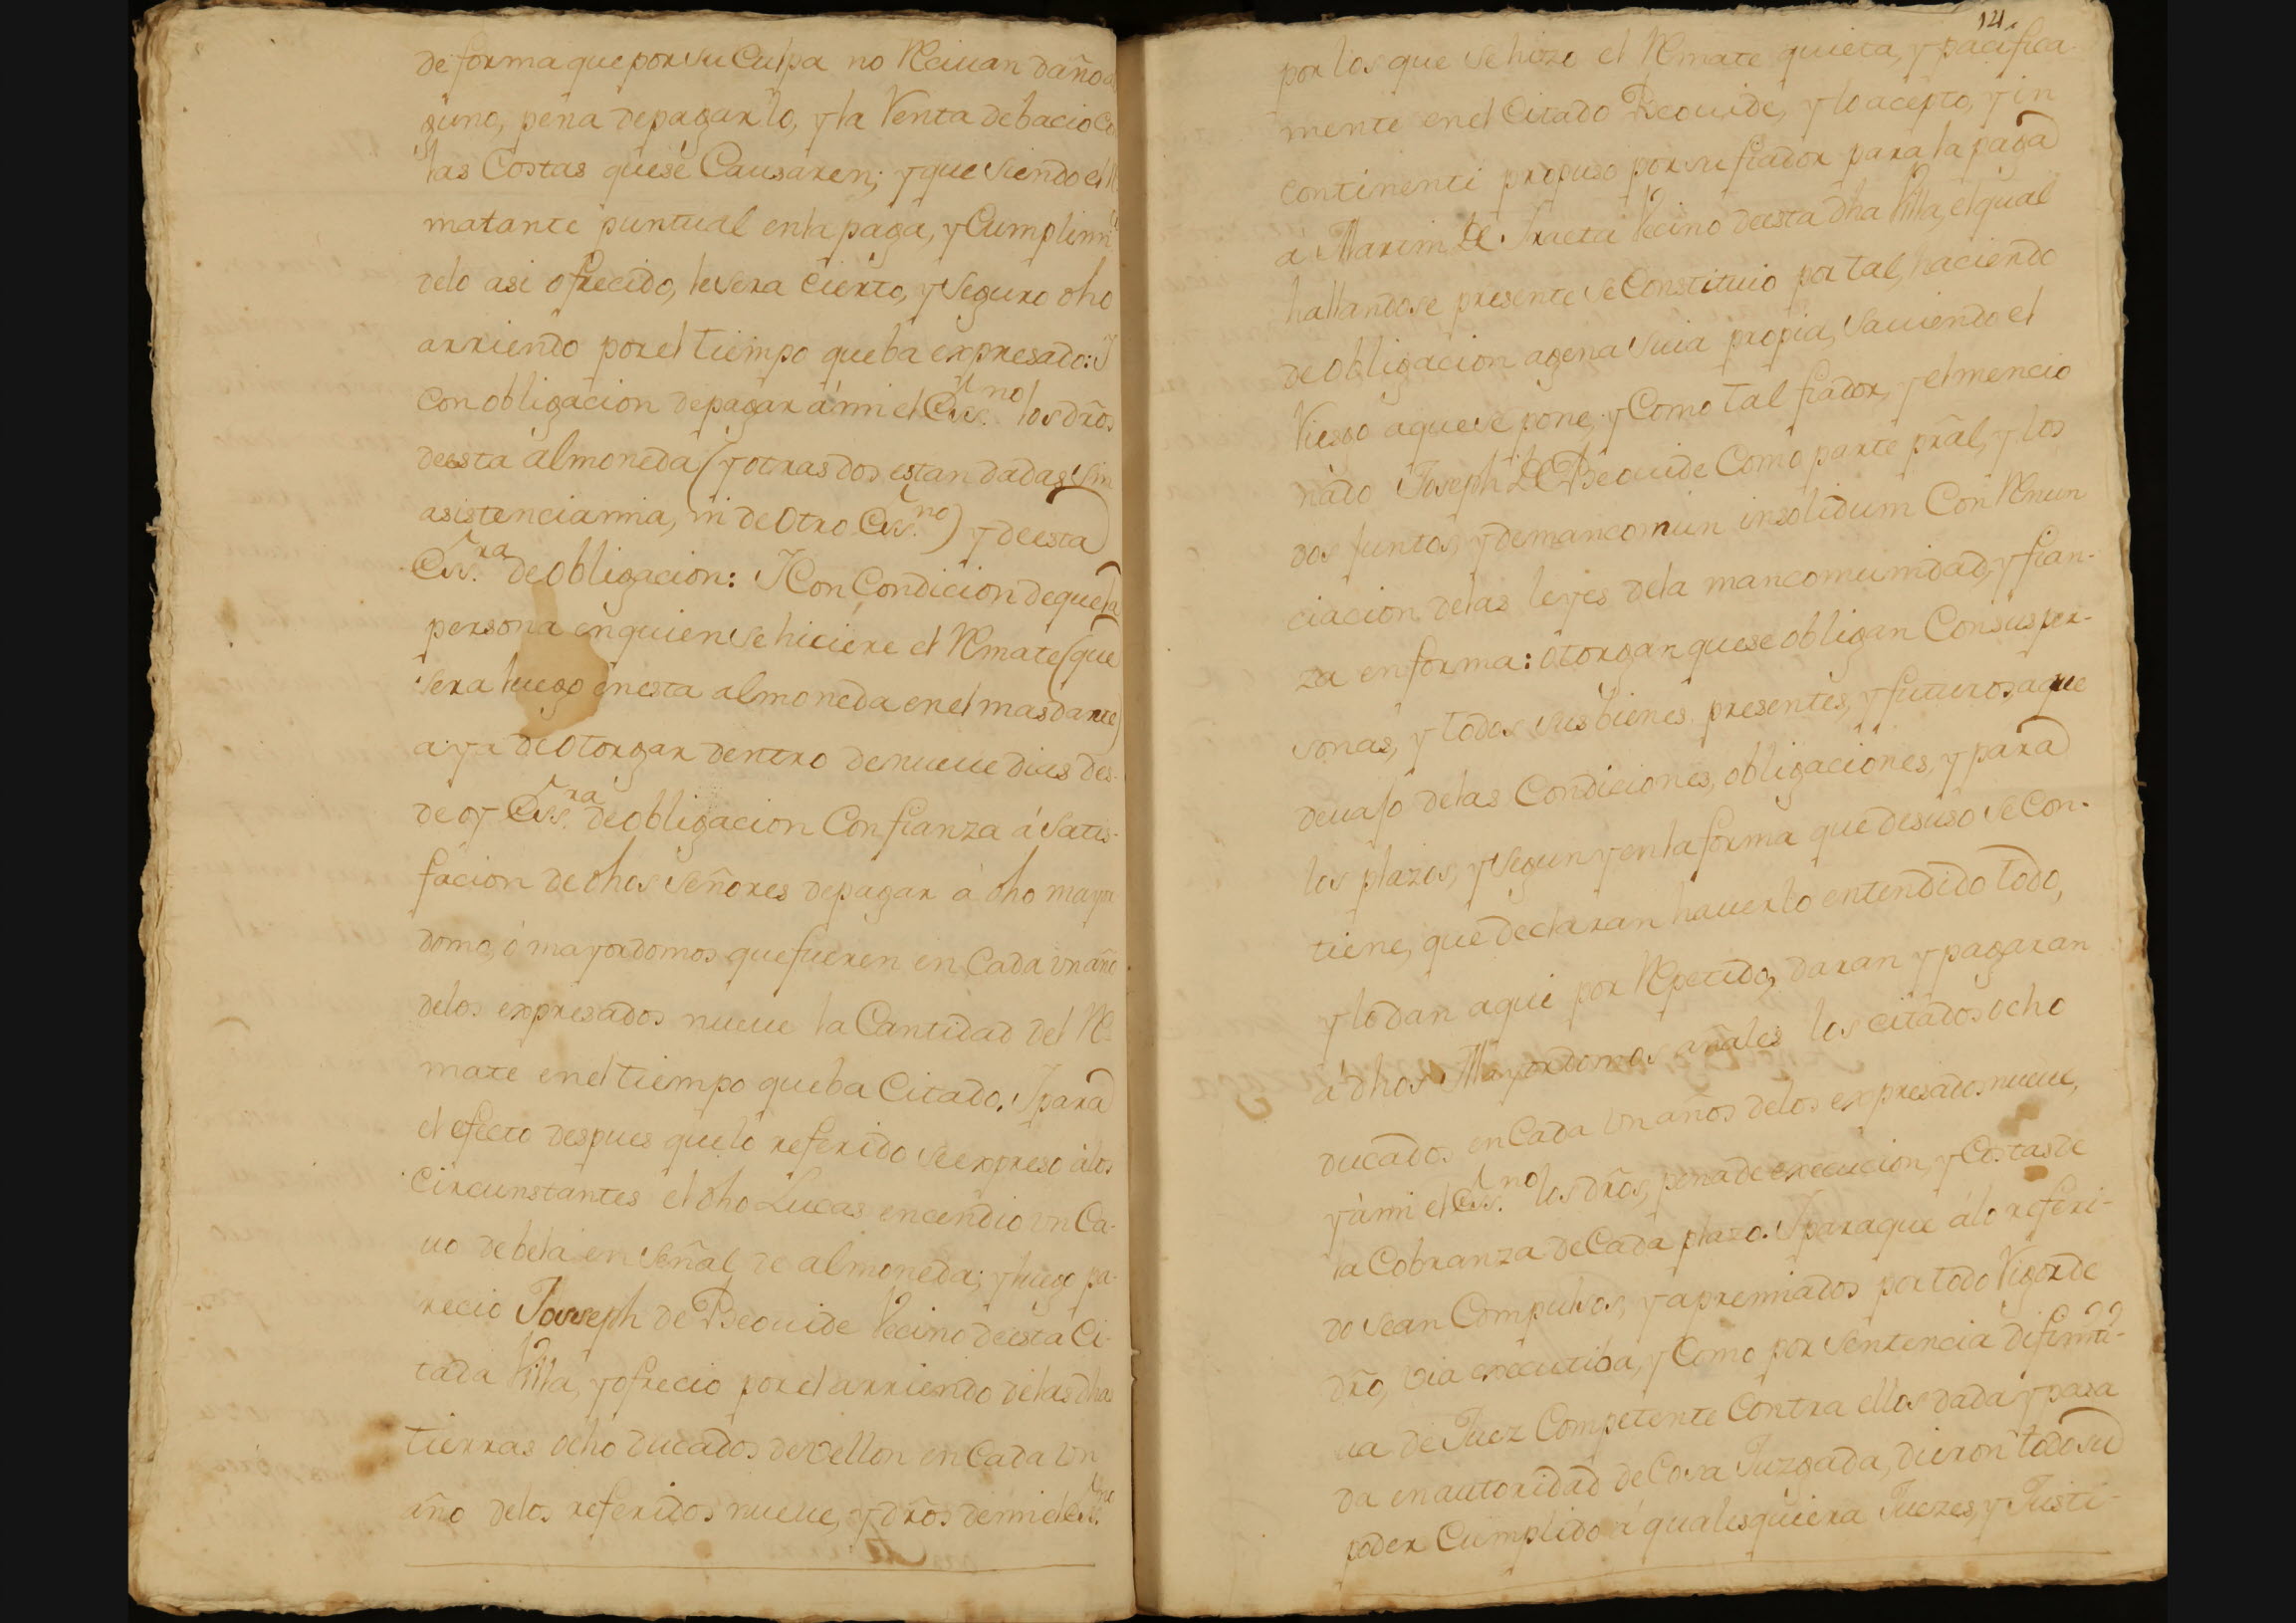 de forma que por su Culpa no Reciuan daño al
guno, pena de pagarlo, y la Venta de bacio Co
las Costas que se Causaren; y que siendo el Re
matante puntual en la paga, y Cumplimto
de lo asi ofrecido, le sera Cierto, y Seguro dho
arriendo por el tiempo que ba expresado: I
Con obligacion de pagar á mi el Essno los dros
de esta almoneda (y otras dos estan dadas sin
asistencia mia, ni de Otro Essno) y de esta
Essra de Obligacion: I Con Condicion de que la
persona en quien se hiciere el Remate (que
sera luego en esta almoneda en el mas dante)
aya de Otorgar dentro de nueue dias des-
de oy Essra de obligacion Con fianza á satis-
facion de dhos Señores de pagar á dho mayor
domo, ó mayordomos que fueren en Cada vn año
de los expresados nueue la Cantidad del Re
mate en el tiempo que ba Citado. I para
el efecto despues que lo referido se expreso á los
Circunstantes el dho Lucas encendio vn Ca-
uo de bela en señal de almoneda; y luego pa-
recio Joseph de Beouide Vecino de esta Ci-
tada Villa, y ofrecio por el arriendo de las dhas
tierras ocho ducados de vellon en Cada vn
año de los referidos nueue, y dros de mi el Essno
121.
por los que se hizo el Remate quieta, y pacifica
mente en el Citado Beouide, y lo acepto, y in
continenti propuso por su fiador para la paga
a Martin de Iraeta Vecino de esta dha Villa, el qual
hallandose presente se Constituio por tal, haciendo
de Obligacion agena suia propia, sauiendo el
Riesgo a que se pone, y Como tal fiador, y el mencio
nado Joseph de Beouide Como parte pral, y los
dos juntos, y de mancomun insolidum Con Renun
ciacion de las leyes de la mancomunidad, y fian-
za en forma: otorgan que se obligan Con sus per-
sonas, y todos sus bienes presentes, y futuros, a que
deuajo de las Condiciones, obligaciones, y para
los plazos, y segun y en la forma que desuso se Con-
tiene, que declaran hauerlo entendido todo,
y lo dan aqui por Repetido, daran y pagaran
á dhos Mayordomos añales los citados ocho
ducados en Cada vn años de los expresados nueue,
y á mi el Essno los dros, pena de execucion, y Costas de
la Cobranza de Cada plazo. I para que á lo referi-
do sean Compulsos, y apremiados por todo Rigor de
dro, via executiba, y Como por Sentencia difiniti-
ua de Juez Competente Contra ellos dada y pasa
da en autoridad de Cosa Juzgada, dieron todo su
poder Cumplido á qualesquiera Juezes, y Justi-